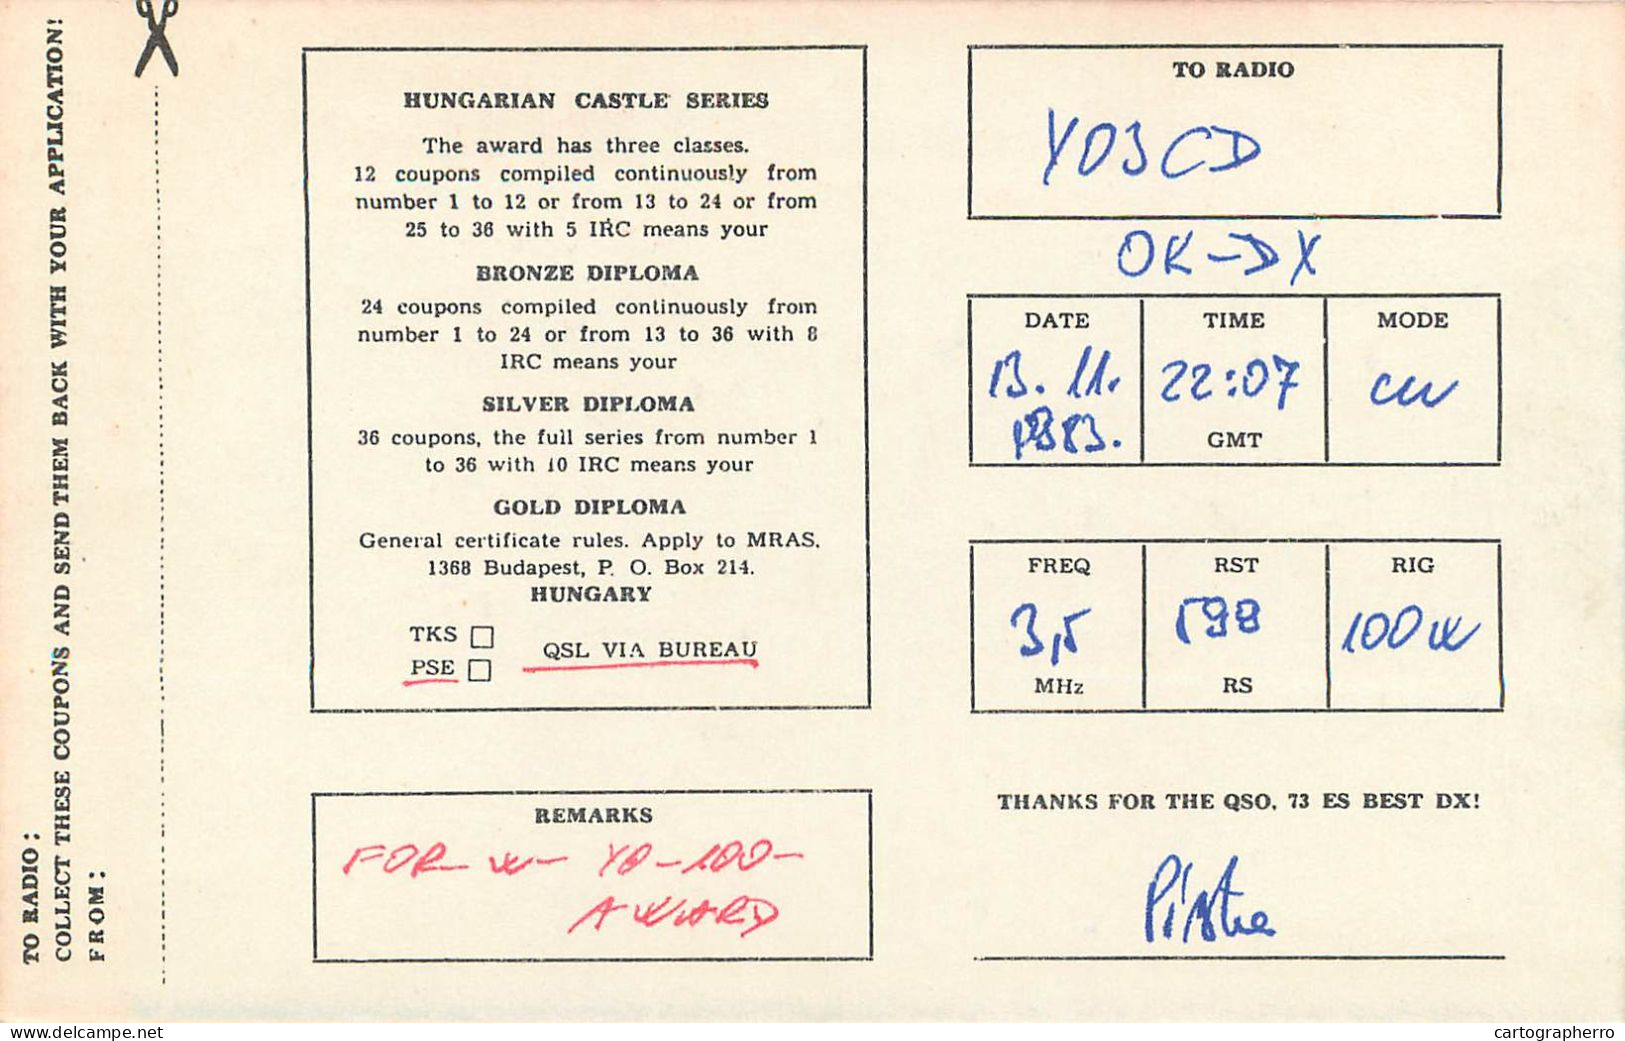 TO RADIO:
COLLECT THESE COUPONS AND SEND THEM BACK WITH YOUR APPLICATION!
FROM:
HUNGARIAN CASTLE SERIES
The award has three classes.
12 coupons compiled continuously from
number 1 to 12 or from 13 to 24 or from
25 to 36 with 5 IRC means your
BRONZE DIPLOMA
24 coupons compiled continuously from
number 1 to 24 or from 13 to 36 with 8
IRC means your
SILVER DIPLOMA
36 coupons, the full series from number 1
to 36 with 10 IRC means your
GOLD DIPLOMA
General certificate rules. Apply to MRAS.
1368 Budapest, P. O. Box 214.
HUNGARY
TKS
PSE
QSL VIA BUREAU
REMARKS
FOR - W - YO - 100 -
AWARD
TO RADIO
YO3CD
OK-DX
DATE TIME MODE
13. 11. 22:07 cw
1983.
GMT
FREQ RST RIG
3,5 599 100 w
MHz RS
THANKS FOR THE QSO, 73 ES BEST DX!
Pista
delcampe.net
cartographerro